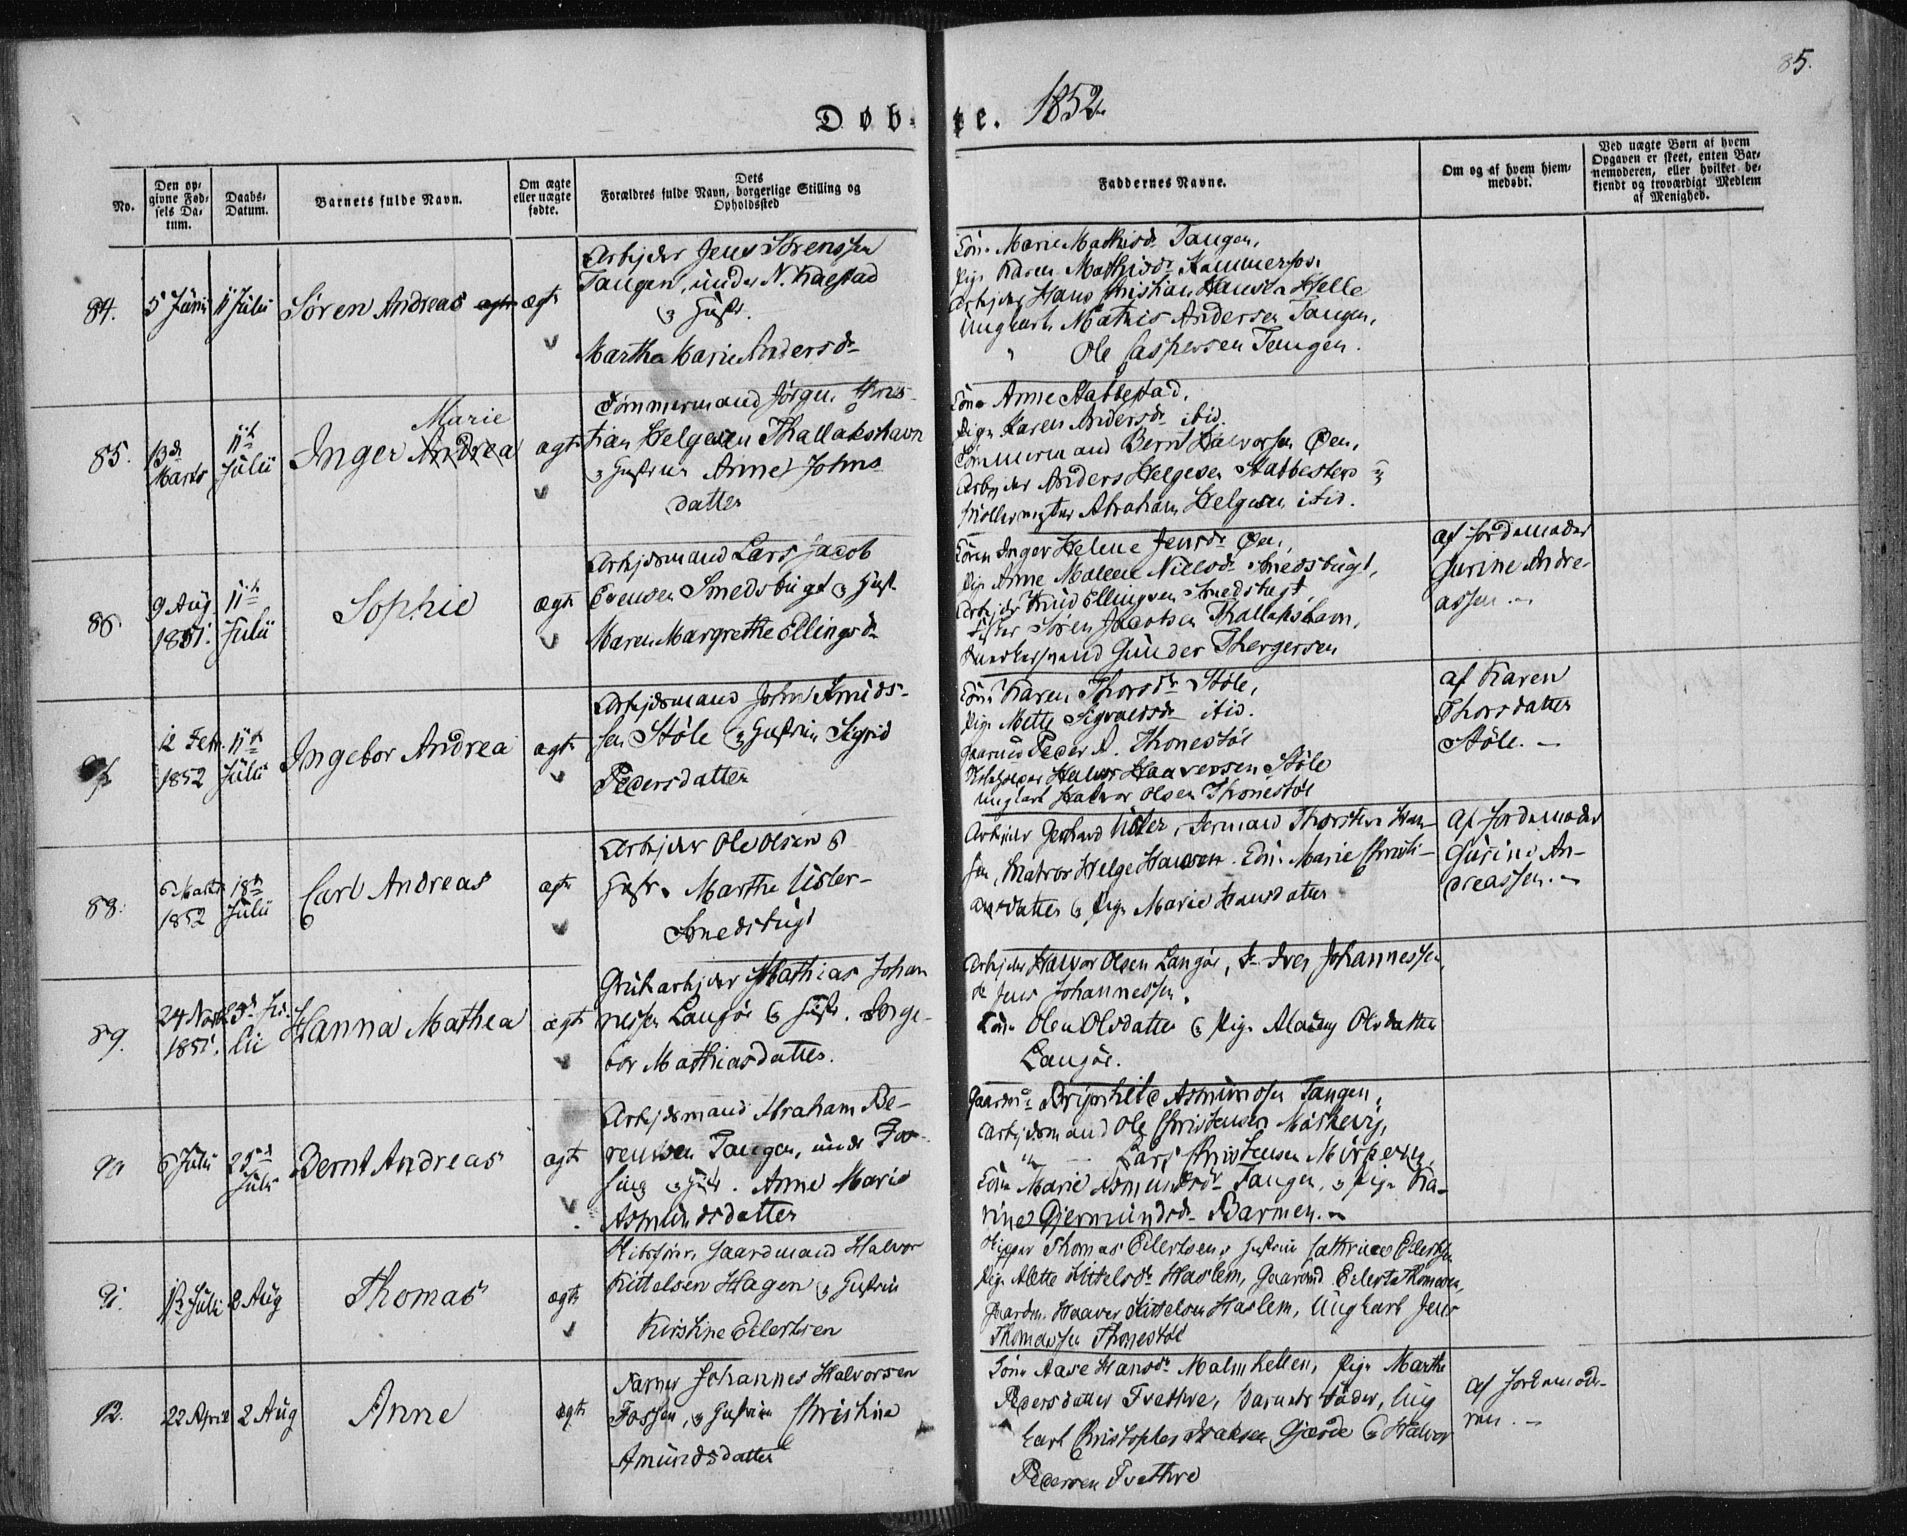 85.
Døbte. 1852
No.
Den opgivne Fødsels Datum.
Daabs-Datum.
Barnets fulde Navn.
Om ægte eller uægte fødte.
Dets Forældres fulde Navn, borgerlige Stilling og Opholdssted
Faddernes Navne.
Om og af hvem hjemmedøbt.
Ved uægte Børn af hvem Opgaven er skeet, enten Barnemoderen, eller hvilket bekiendt og troværdigt Medlem af Menighed.
84. 5 Junii 11 Julii Søren Andreas ægte
Arbejder Jens Sørensen
Tangen, under N. Kaestad
Hustr.
Martha Marie Andersdr
Kone Marie Mathisdr Tangen,
Pige Karen Mathisdr Hammerfos
Arbejder Hans Christian Hansen Helle
Ungkarl Mathis Andersen Tangen,
" Ole Caspersen Tangen.
85. 13de Marts 11te Julii Inger Andrea Marie ægte
Tømmermand Jørgen Chris-
tian Helgesen Thallakshavn
& Hustrue Anne Johns
datter
Kone Anne Stabbestad,
Pige Karen Andersdr ibid.
Tømmermand Bernt Halvorsen Øen,
Arbejder Anders Helgesen Stabbestad &
Abraham Helgesen ibid.
86. 9 Aug. 1851. 11te Julii Sophie ægte
Arbejdsmand Lars Jacob
Evensen Smedsbugt & Hustr
Maren Margrethe Ellingsdr
Konen Inger Helene Jensdr Øen,
Pige Anne Maleen Nielsdr Smedsbugt,
Arbejder Knud Ellingsen Smedsbugt,
Fisker Søren Jacobsen Thallakshavn,
Gunder Thergersen
af Jordemoder
Gurine Andre-
assen.
12 Febr. 1852 11te Julii Ingebor Andrea ægte
Arbejdsmand John Knuds-
sen Støle & Hustrue Sigrid
Pedersdatter
Kone Karen Thorsdr Støle,
Pige Mette Sigvaldsdr ibid.
Gaardmd Peder A. Thonestøl
Halvor Haaversen Støle
Ungkarl Halvor Olsen Thonestøl
af Karen
Thorsdatter
Støle.
88. 6 Marts 1852 18de Julii Carl Andreas ægte
Arbejder Ole Olsen &
Hustr. Marthe Uisler-
Smedsbugt
Arbejder Gerhard Uisler, Sømand Thorsten Han-
sen, Matros Helge Hansen. Kone Marie Christi-
ansdatter & Pige Marie Hansdatter
Af Jordemoder
Gurine An-
dreassen.
89. 24 Novbr 1851. 25de Julii Hanna Mathea ægte
Grubearbejder Mathias Johan
nessen Langøe & Hustr. Inge-
bor Mathiasdatter.
Arbejder Halvor Olsen Langøe, do Iver Johannessen,
do Jens Johannessen,
Kone Olea Olsdatter & Pige Olsdatter
Langøe.
90 6 Julii 25de Julii Bernt Andreas ægte
Arbejdsmand Abraham Be-
rentsen Tangen, under Fos-
sing & Hustr. Anne Marie
Asmundsdatter
Asmundsen Tangen,
Arbejdsmand Ole Christensen Mørkevig,
" Lars Christensen Mørkevig,
Kone Marie Asmundsdr Tangen, & Pige Ka-
rine Gjermundsdr Barmen.
91. 12 Julii 2 Aug Thomas ægte
Gaardmand Halvor
Kittelsen Hagen & Hustrue
Kirstine Eilertsen
Skipper Thomas Eilertsen, Hustrue Cathrine Eilertsen
Pige Alette Kittelsdr Haslem, Gaardmd Eilert Thomesen,
Gaardm. Haaver Kittelsen Haslem, Ungkarl Jens
Thomassen Thonestøl
92. 22 April 2 Aug Anne ægte
Farver Johannes Halvorsen
Fossen, & Hustrue Christine
Amundsdatter
Kone Aase Hansdr Malmhellen, Pige Marthe
Pedersdatter Tvethre, Barnets Fader, Ung
karl Christopher Isaksen Gjerde & Halvor
Pedersen Tvethre
af Jordemode-
ren.